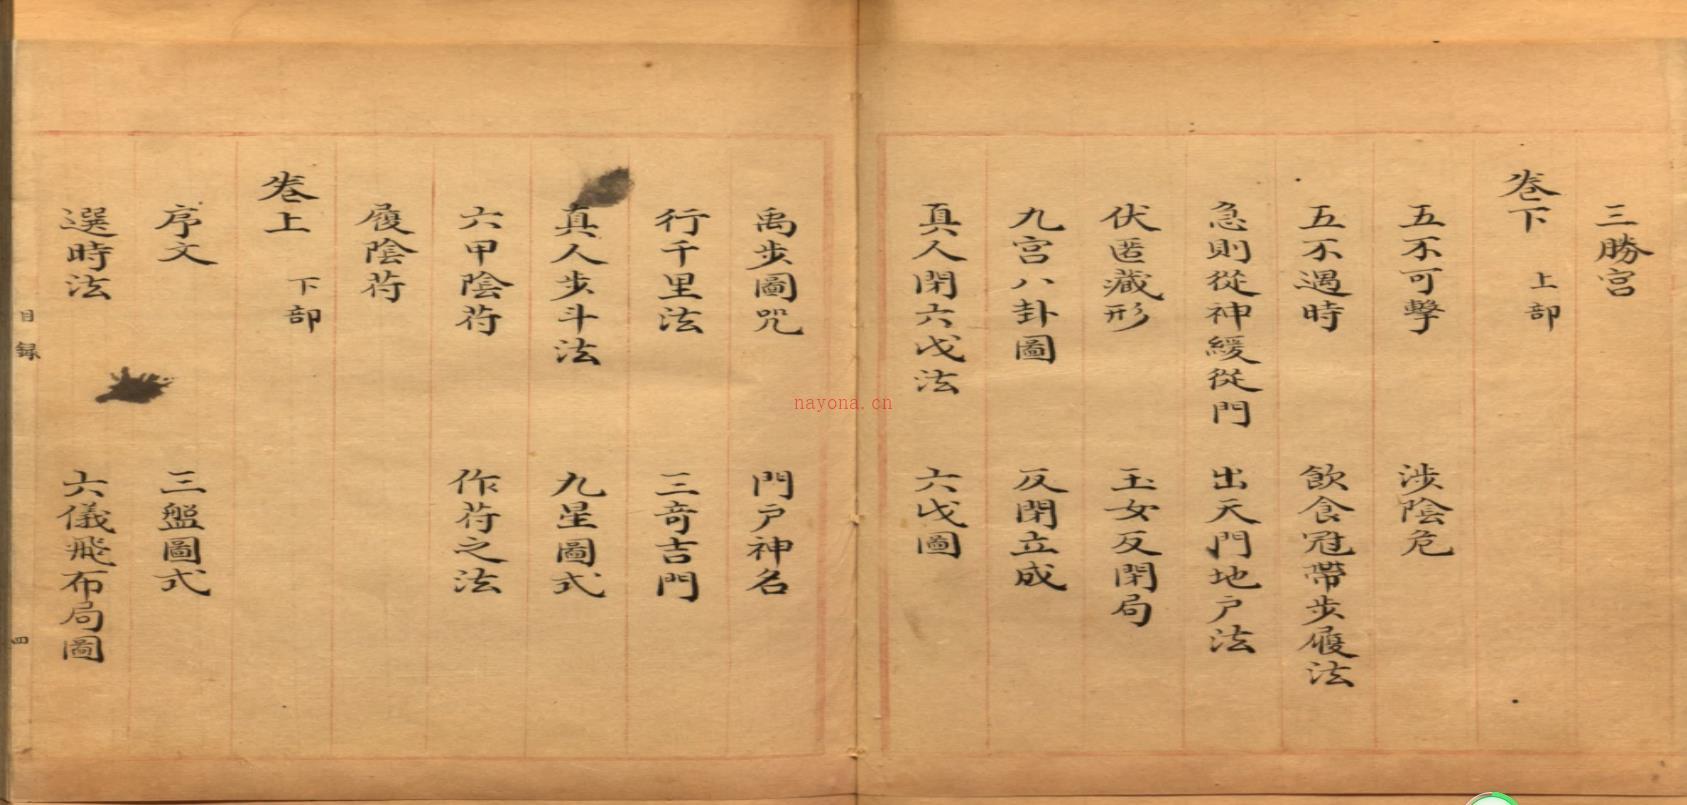 三勝宮
卷下　上部
五不可擊　涉險危
五不遇時　飲食冠帶步履法
急則從神緩從門　出天門地户法
伏匿藏形　玉女反閉局
九宮八卦圖　反閉立成
真人閉六戊法　六戊圖
禹步圖咒　門户神名
行千里法　三奇吉門
真人步斗法　九星圖式
六甲陰苻　作苻之法
履陰苻
卷上　下部
序文　三盤圖式
選時法　六儀飛布局圖
目録
四
nayona.cn